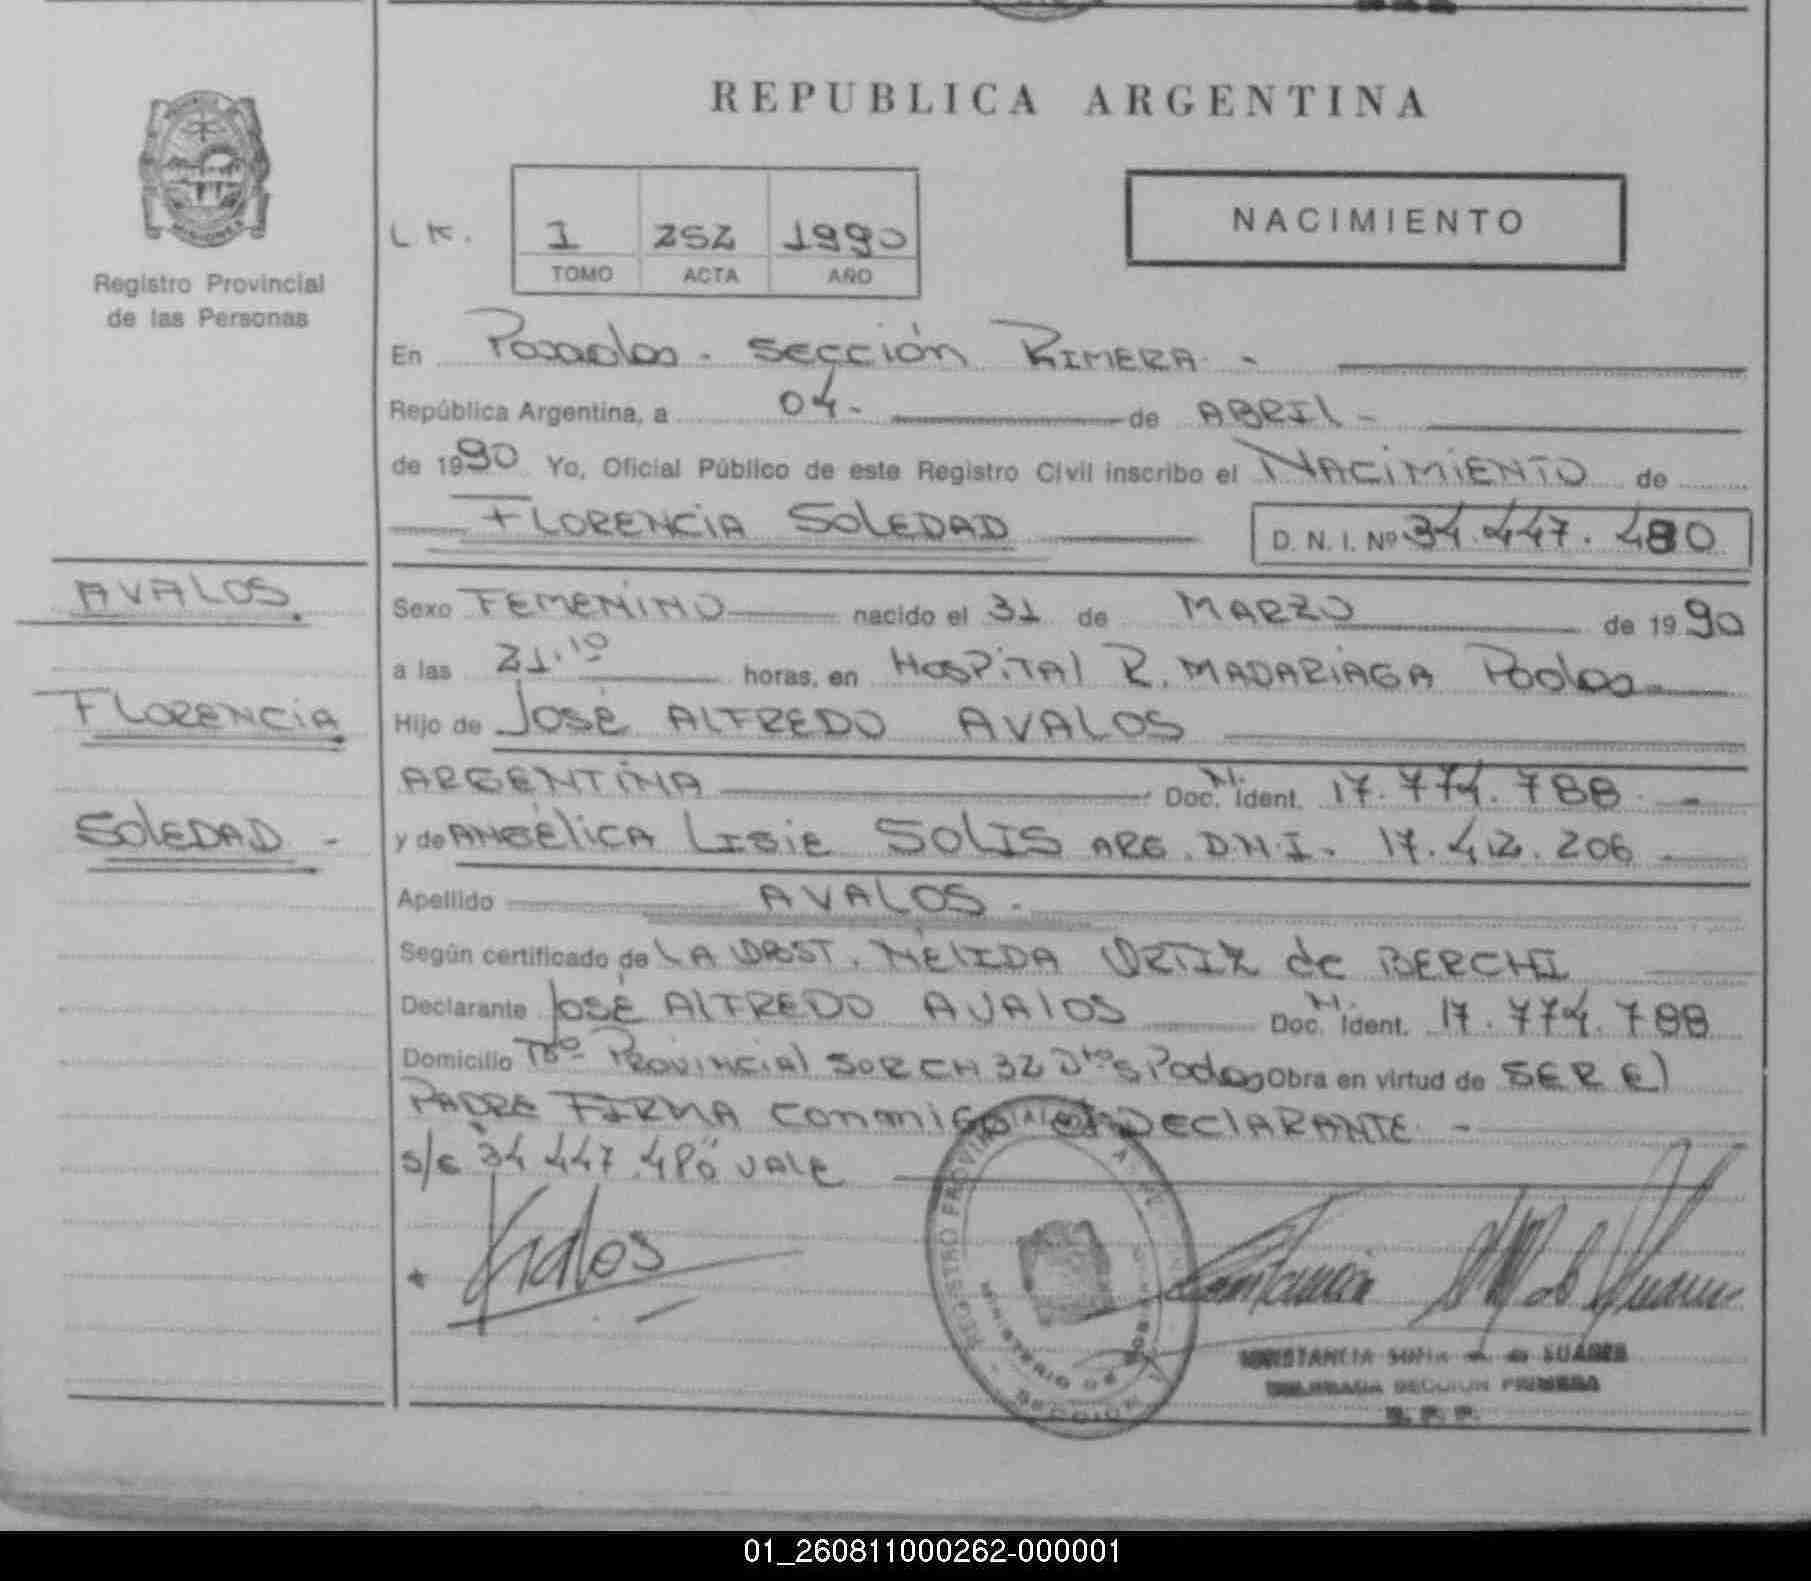 REPUBLICA ARGENTINA
MISIONES
Registro Provincial
de las Personas
L K.
1 252 1990
TOMO ACTA AÑO
NACIMIENTO
En Posadas - Sección PRIMERA -
República Argentina, a 04- de ABRIL -
de 1990 Yo, Oficial Público de este Registro Civil inscribo el NACIMIENTO de
FLORENCIA SOLEDAD D. N. I. Nº 34.447.480
AVALOS.
FLORENCIA
SOLEDAD -
Sexo FEMENINO nacido el 31 de MARZO de 1990
a las 21.10 horas, en HOSPITAL R. MADARIAGA Pdas
Hijo de José ALFREDO AVALOS
ARGENTINA Doc. N. Ident. 17.774.788 -
y de ANGÉLICA SOLIS ARG. D.N.I. 17.412.206
Apellido AVALOS -
Según certificado de LA OBST. NÉLIDA ORTIZ de BERCHI
Declarante José ALFREDO AVALOS Doc. N. Ident. 17.774.788
Domicilio PROVINCIAL CH 32 Pdas Obra en virtud de SER El
PADRE FIRMA conmigo el DECLARANTE -
s/e 34 447.480 VALE
REGISTRO PROVINCIAL
MINISTERIO DE GOBIERNO
SECCION
SUAREZ
DELEGADA SECCION PRIMERA
R. P. P.
01_260811000262-000001